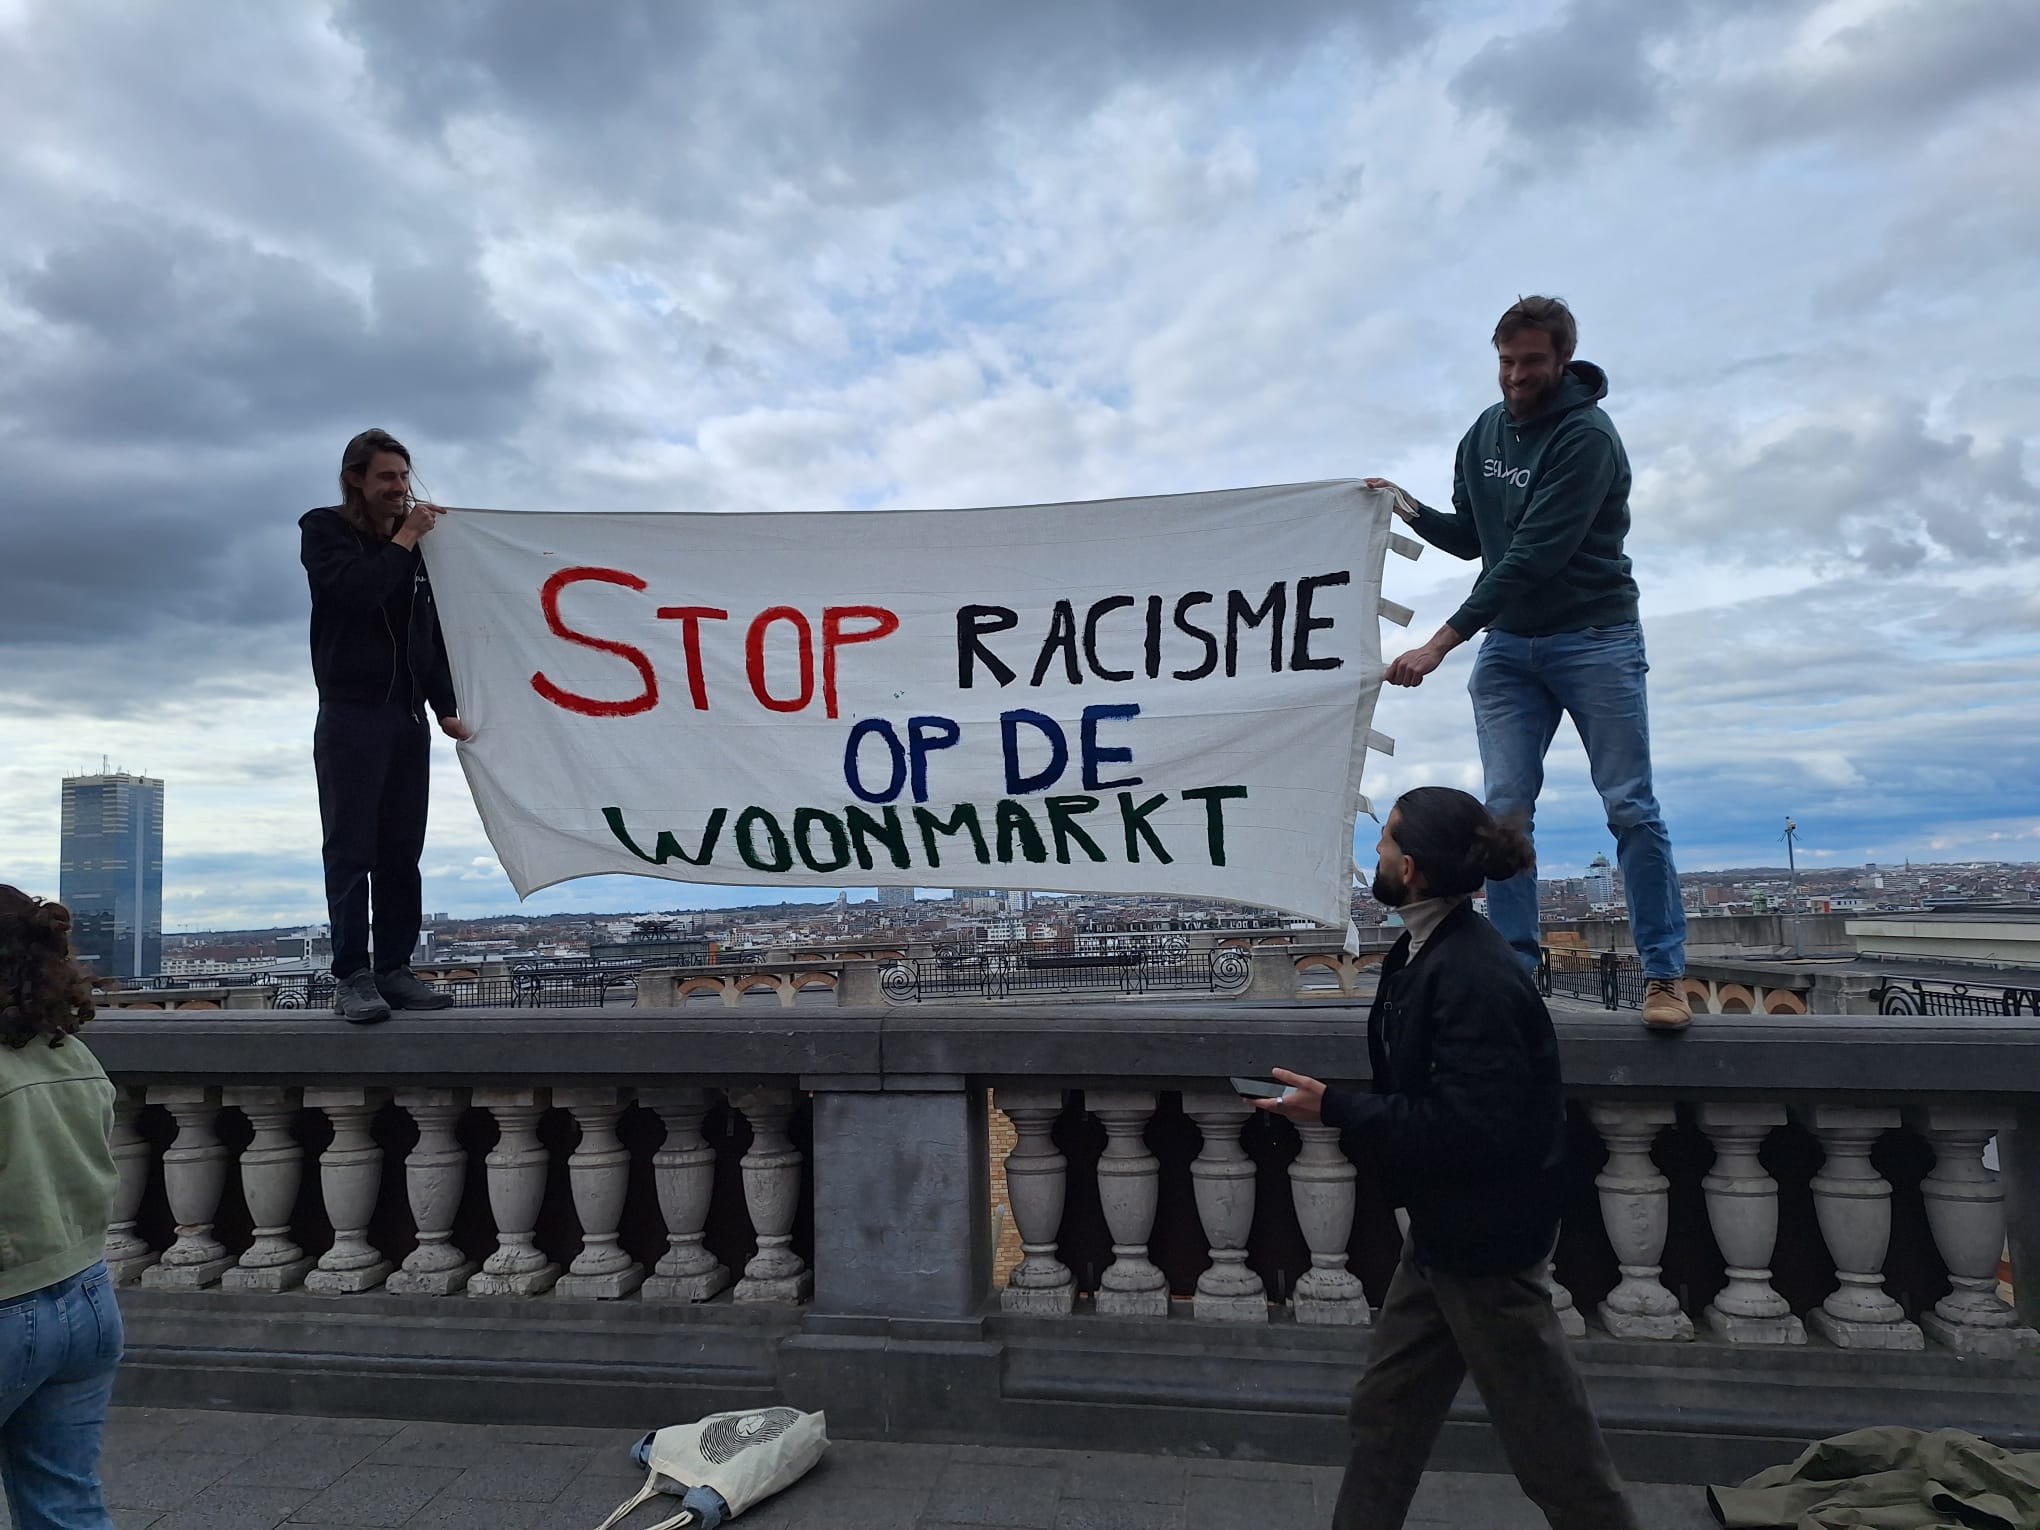 STOP RACISME
OP DE
WOONMARKT